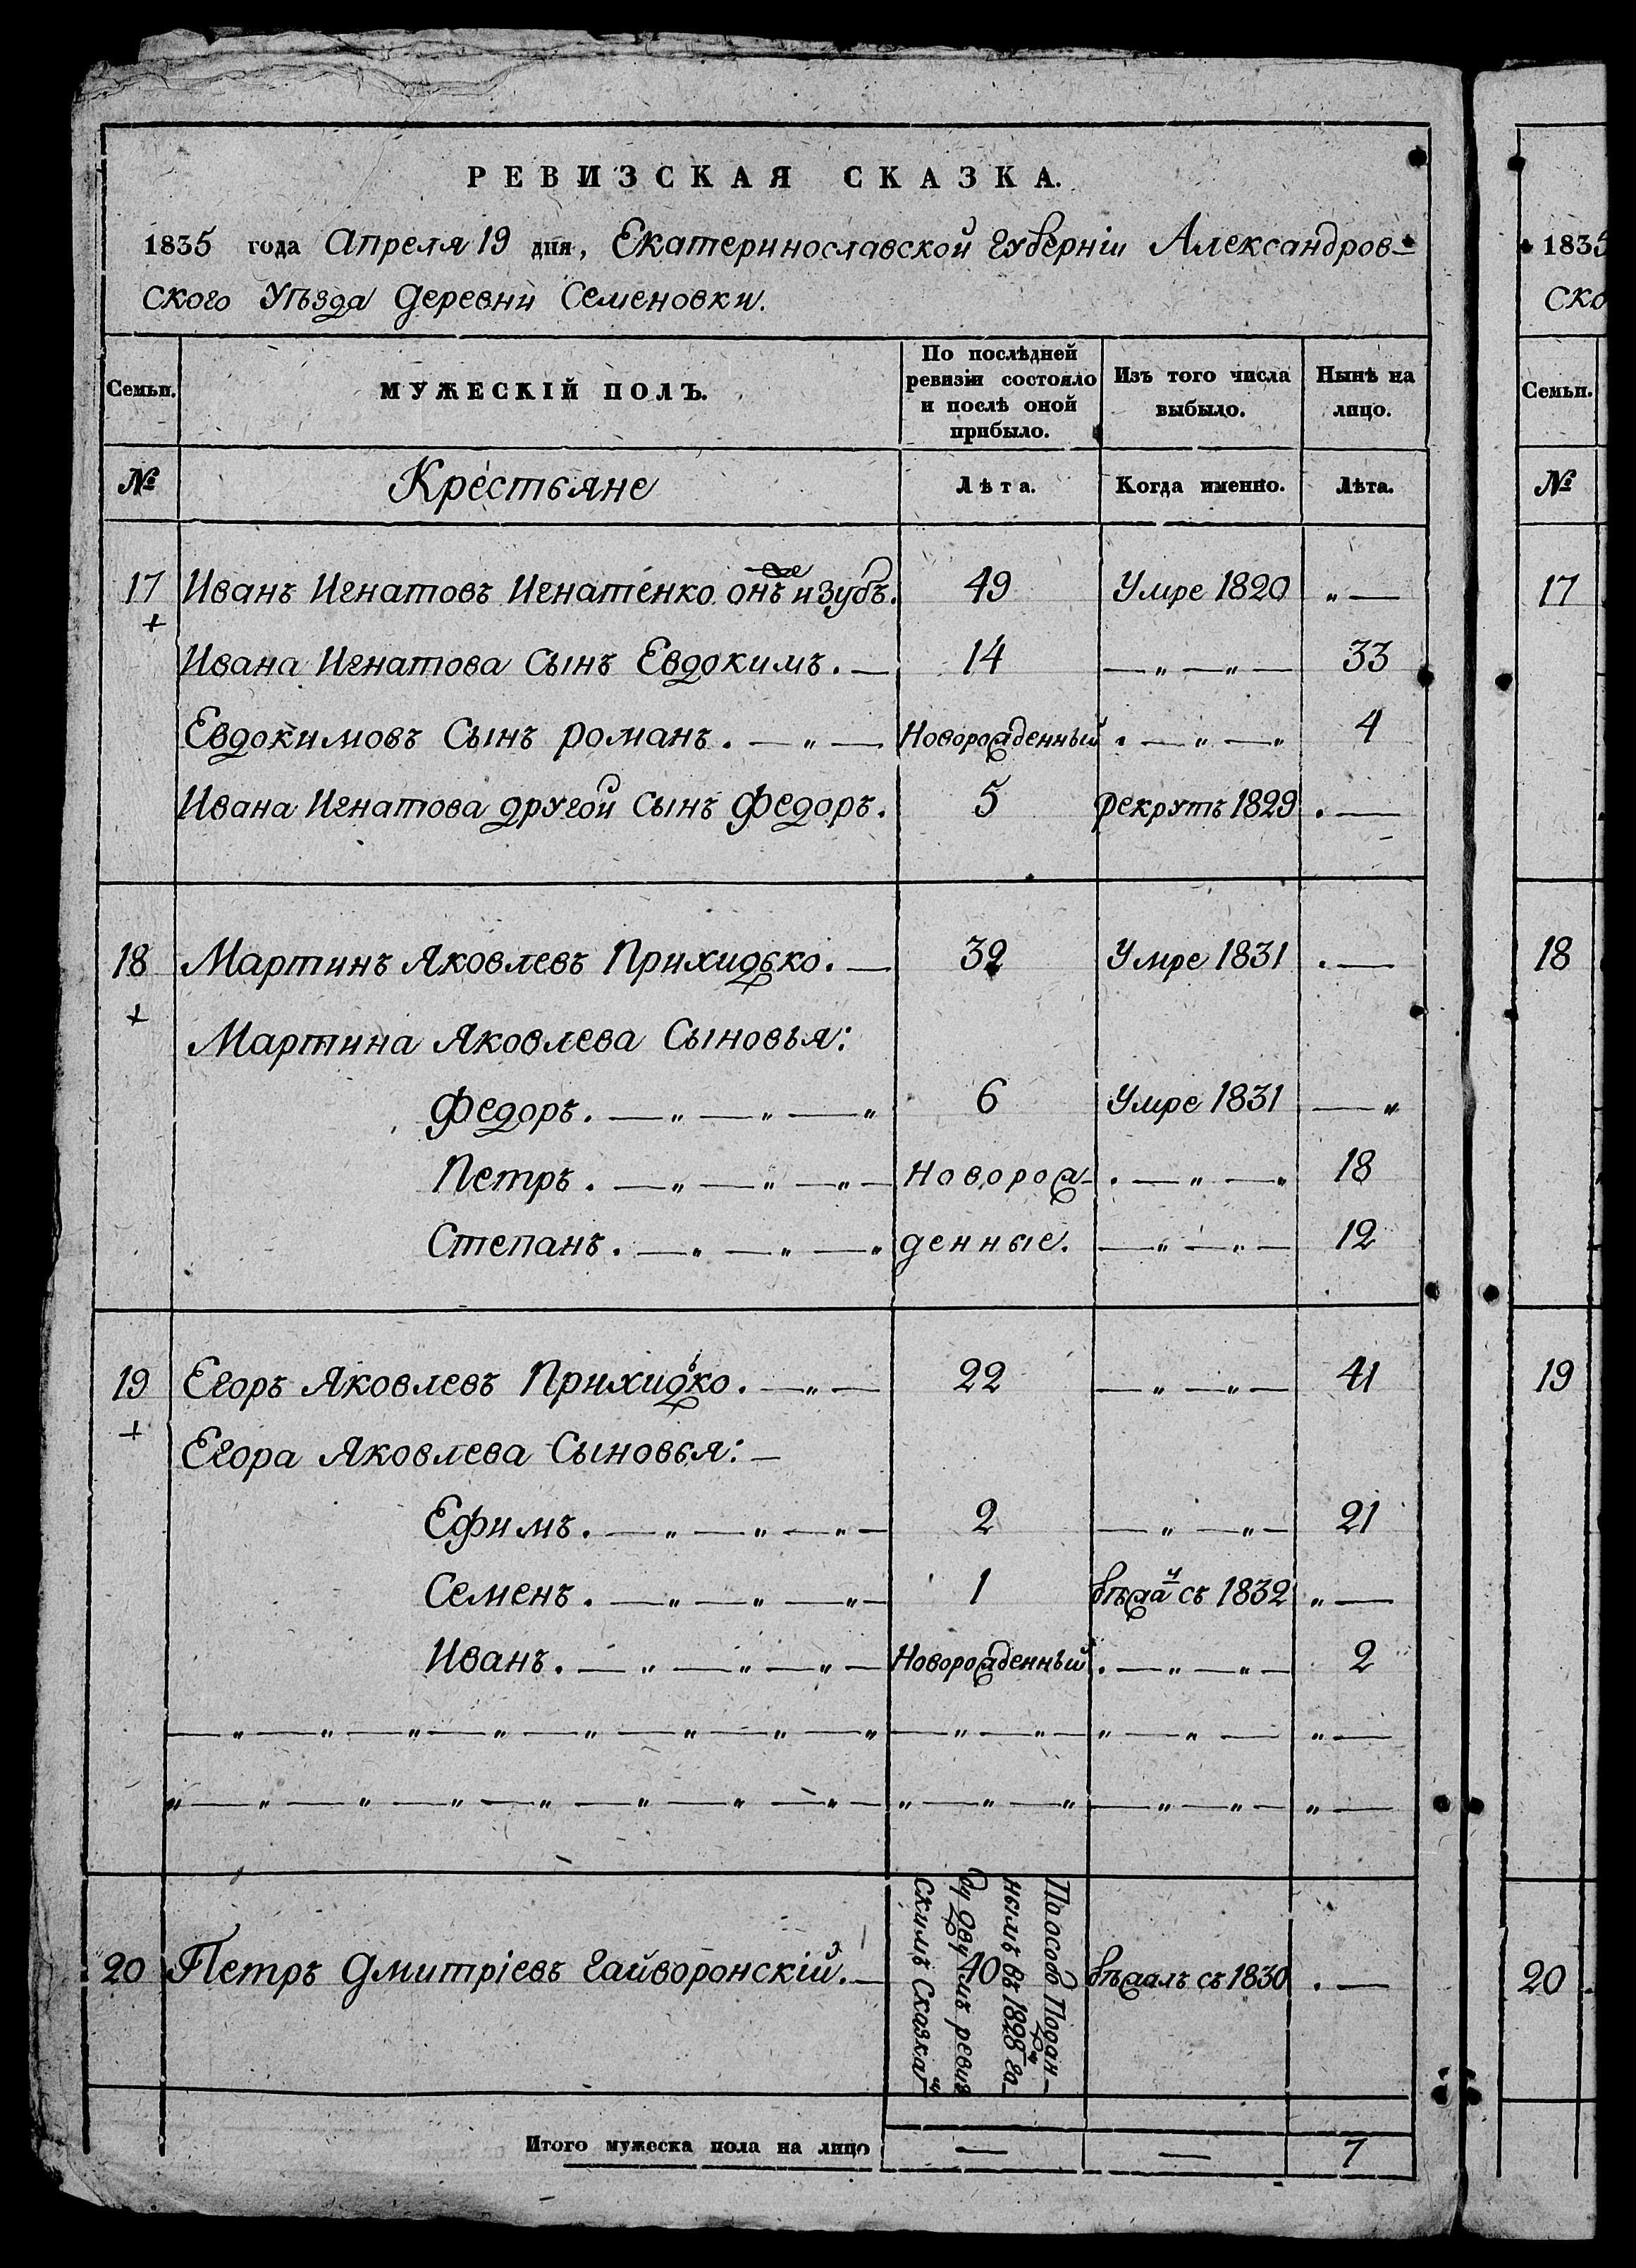 РЕВИЗСКАЯ СКАЗКА.
1835 года Апреля 19 дня, Екатеринославской Губерніи Александров-
ского Уѣзда деревни Семеновки.
Семьи. МУЖЕСКІЙ ПОЛЪ. По послѣдней ревизіи состояло и послѣ оной прибыло. Изъ того числа выбыло. Нынѣ на лицо.
№ Крестьяне Лѣта. Когда именно. Лѣта.
17 Иванъ Игнатовъ Игнатенко онъ и Зубъ. 49 Умре 1820 „ —
Ивана Игнатова Сынъ Евдокимъ. — 14 — „ — „ — 33
Евдокимовъ Сынъ романъ. — „ — Новорожденный . — „ — „ 4
Ивана Игнатова другой Сынъ Федоръ. 5 рекрутъ 1829 . —
18 Мартинъ Яковлевъ Прихидько. — 32 Умре 1831 . —
Мартина Яковлева Сыновья:
Федоръ. — „ — „ — „ 6 Умре 1831 — „
Петръ. — „ — „ — „ — Новорож- . — „ — „ 18
Степанъ. — „ — „ — „ денные. — „ — „ — 12
19 Егоръ Яковлевъ Прихидько. — „ — 22 — „ — „ — 41
Егора Яковлева Сыновья: —
Ефимъ. — „ — „ — „ — 2 — „ — „ — 21
Семенъ. — „ — „ — „ — 1 бѣжа л съ 1832 „ —
Иванъ. — „ — „ — „ — Новорожденный . — „ — „ — 2
— „ — „ — „ — „ — „ — „ — „ — „ — „ — „ — „ — „ — „ —
„ — „ — „ — „ — „ — „ — „ — „ — „ — „ — „ — „ — „ — „ —
20 Петръ Дмитріевъ Гайворонскій. — 40 бѣжалъ съ 1830 . —
По особо Подан-
нымъ въ 1828 го-
ду двумъ ревиз
скимъ Сказка
Итого мужеска пола на лицо — — 7
1835
ско
Семьи.
№
17
18
19
20